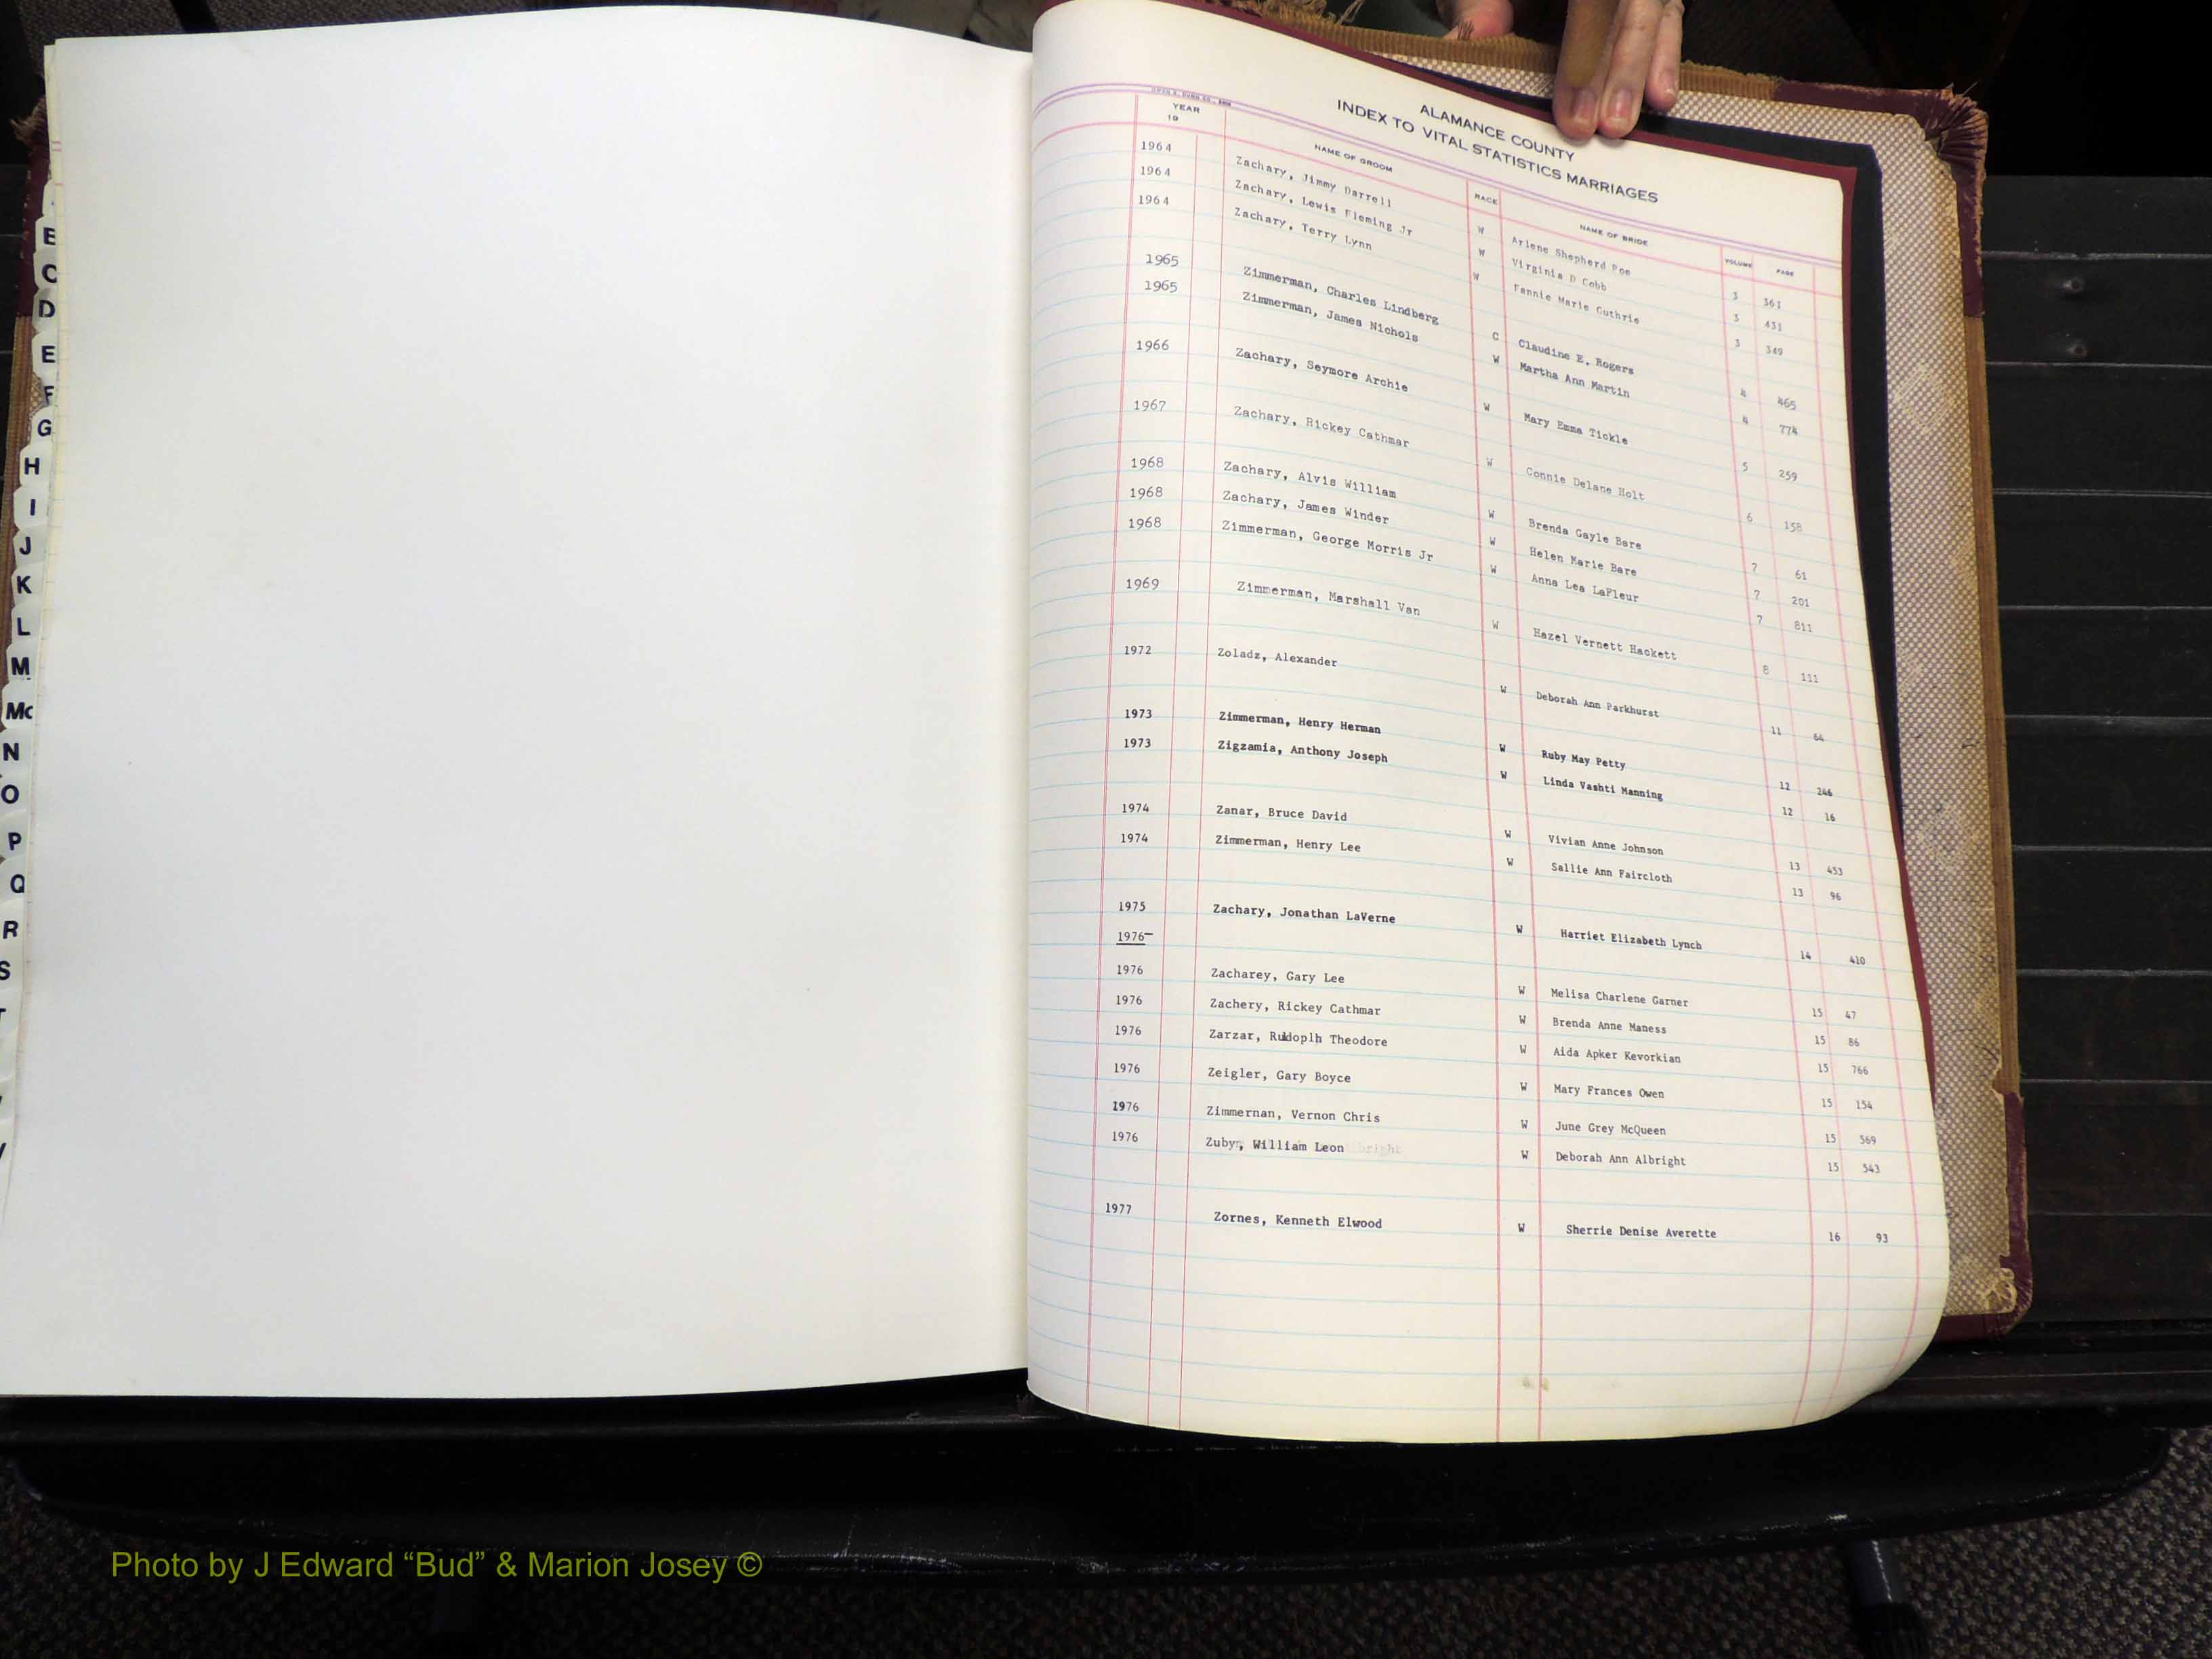 B
C
D
E
F
G
H
I
J
K
L
M
Mc
N
O
P
Q
R
S
ALAMANCE COUNTY
INDEX TO VITAL STATISTICS MARRIAGES
YEAR 19 NAME OF GROOM RACE NAME OF BRIDE VOLUME PAGE
1964 Zachary, Jimmy Darrell W Arlene Shepherd Poe 3 361
1964 Zachary, Lewis Fleming Jr W Virginia D Cobb 3 431
1964 Zachary, Terry Lynn W Fannie Marie Guthrie 3 349
1965 Zimmerman, Charles Lindberg C Claudine E. Rogers 4 465
1965 Zimmerman, James Nichols W Martha Ann Martin 4 774
1966 Zachary, Seymore Archie W Mary Emma Tickle 5 259
1967 Zachary, Rickey Cathmar W Connie Delane Holt 6 158
1968 Zachary, Alvis William W Brenda Gayle Bare 7 61
1968 Zachary, James Winder W Helen Marie Bare 7 201
1968 Zimmerman, George Morris Jr W Anna Lea LaFleur 7 811
1969 Zimmerman, Marshall Van W Hazel Vernett Hackett 8 111
1972 Zoladz, Alexander W Deborah Ann Parkhurst 11 64
1973 Zimmerman, Henry Herman W Ruby May Petty 12 246
1973 Zigzamia, Anthony Joseph W Linda Vashti Manning 12 16
1974 Zanar, Bruce David W Vivian Anne Johnson 13 453
1974 Zimmerman, Henry Lee W Sallie Ann Faircloth 13 96
1975 Zachary, Jonathan LaVerne W Harriet Elizabeth Lynch 14 410
1976-
1976 Zacharey, Gary Lee W Melisa Charlene Garner 15 47
1976 Zachery, Rickey Cathmar W Brenda Anne Maness 15 86
1976 Zarzar, Rudoplh Theodore W Aida Apker Kevorkian 15 766
1976 Zeigler, Gary Boyce W Mary Frances Owen 15 154
1976 Zimmernan, Vernon Chris W June Grey McQueen 15 569
1976 Zuby, William Leon W Deborah Ann Albright 15 543
1977 Zornes, Kenneth Elwood W Sherrie Denise Averette 16 93
Photo by J Edward “Bud” & Marion Josey ©